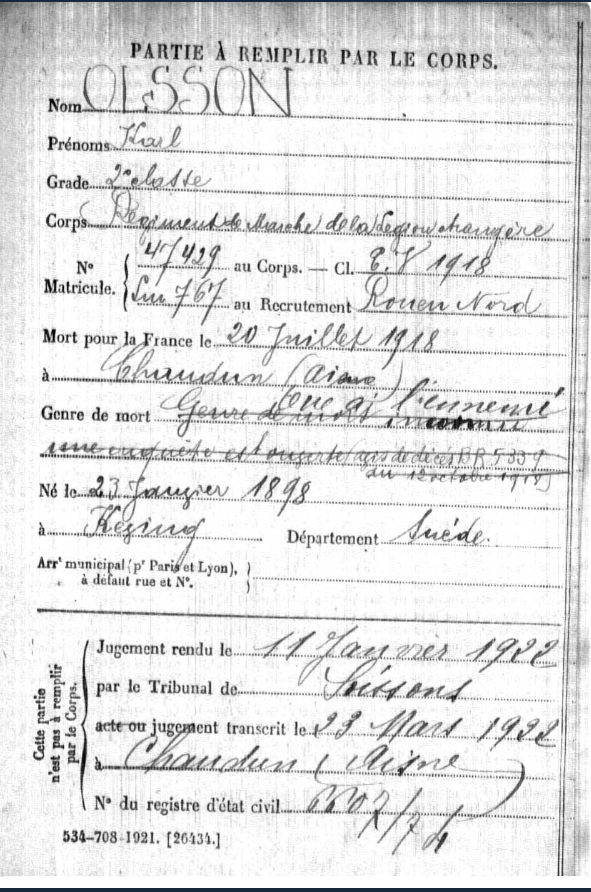 PARTIE À REMPLIR PAR LE CORPS.
Nom OLSSON
Prénoms Karl
Grade 2e classe
Corps Régiment de Marche de la Légion étrangère
N° Matricule. 47429 au Corps. — Cl. E.V 1918
767 au Recrutement Rouen Nord
Mort pour la France le 20 Juillet 1918
à Chaudun (Aisne)
Tué à l'ennemi
Genre de mort Genre de mort inconnu
une enquête est ouverte (avis de décès
du 12 octobre 1918)
Né le 23 Janvier 1898
à Département Suède.
Arrt municipal (pr Paris et Lyon),
à défaut rue et N°.
Cette partie n'est pas à remplir par le Corps.
Jugement rendu le 11 Janvier 1922
par le Tribunal de Soissons
acte ou jugement transcrit le 23 Mars 1922
à Chaudun (Aisne)
N° du registre d'état civil
534-708-1921. [26434.]